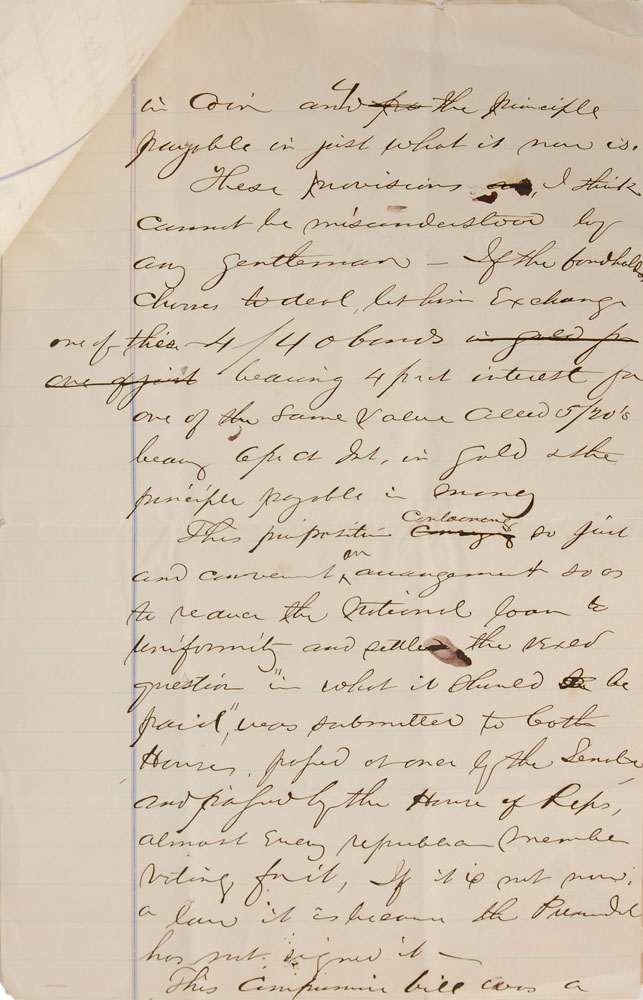 in Coin and the principle
payable in just what it now is.
These provisions, I think
cannot be misunderstood by
any gentleman – If the bondholder
chooses to deal, let him Exchange
one of these 4/40 bonds in gold for
one of just bearing 4 pr ct interest for
one of the same value called 5/20's
bearg 6 pr ct Int, in gold & the
principle payable in money
This proposition containing so just
and convenient an arrangement so as
to reduce the National loan to
uniformity and settle the vexed
question "in what it should be
paid", was submitted to both
Houses, passed at once by the Senate
and passed by the House of Reps,
almost Every republican member
voting for it, If it is not now
a law it is because the President
has not signed it –
This Compromise bill was a